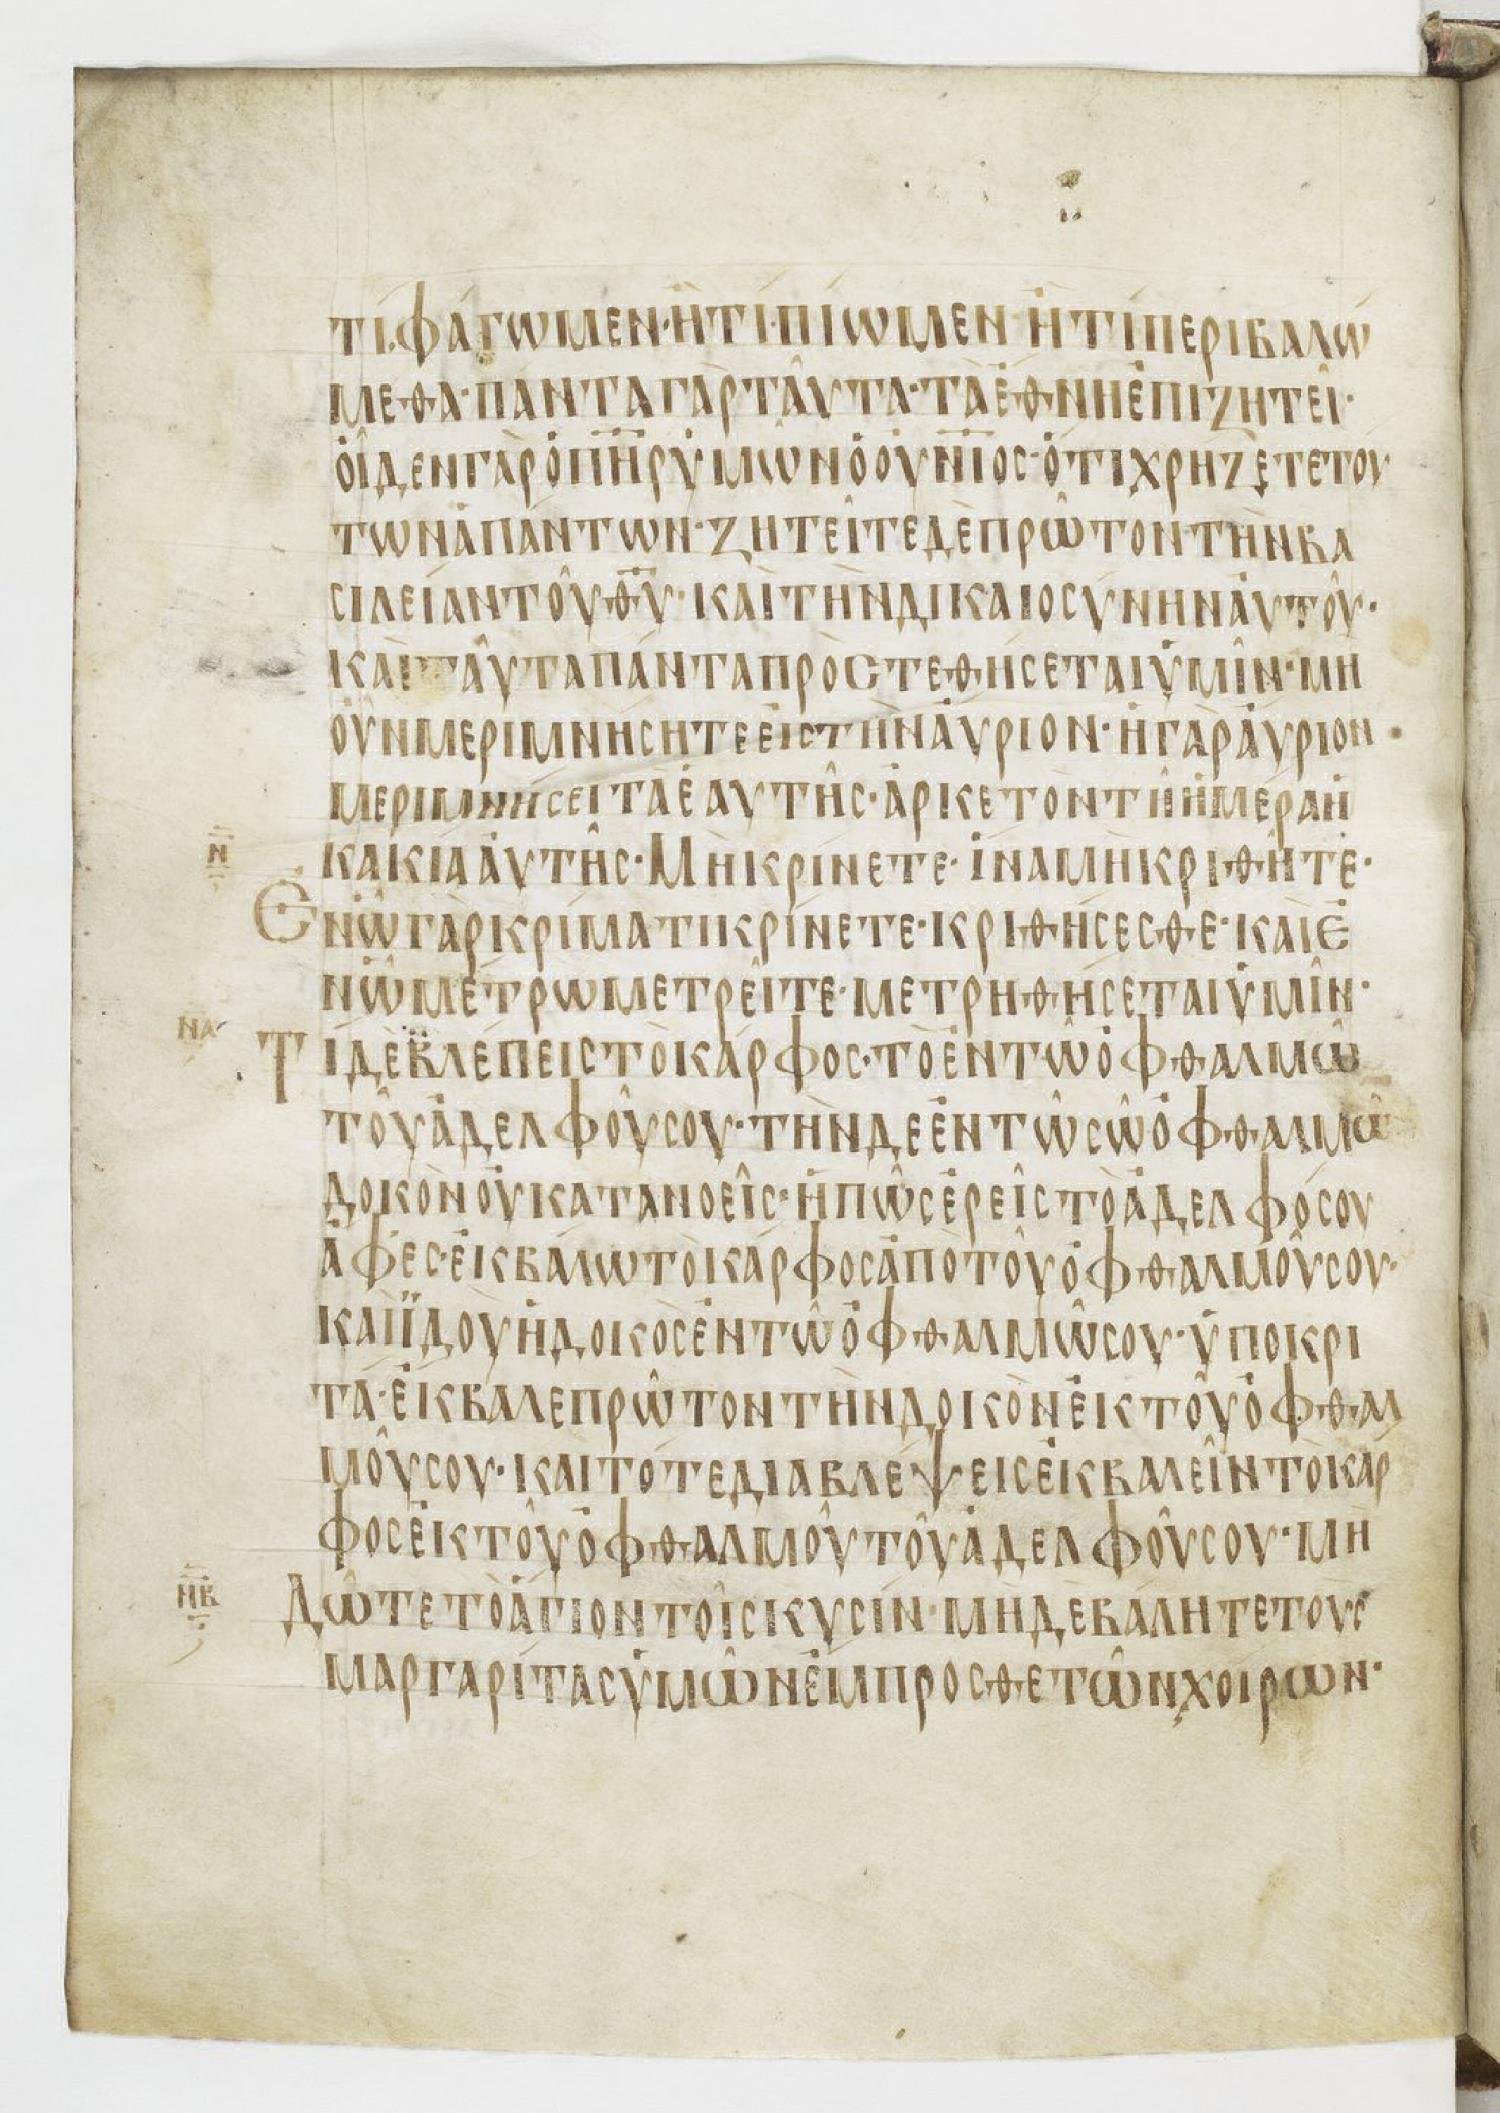 ΤΙ·ΦΑΓΩΜΕΝ·ΗΤΙ·ΠΙΩΜΕΝ ΗΤΙΠΕΡΙΒΑΛΩ
ΜΕΘΑ·ΠΑΝΤΑΓΑΡΤΑΥΤΑ·ΤΑΕΘΝΗΕΠΙΖΗΤΕΙ·
ΟΙΔΕΝΓΑΡΟΠΗΡΥΜΩΝΟΟΥΝΙΟΣ·ΟΤΙΧΡΗΖΕΤΕΤΟΥ
ΤΩΝΑΠΑΝΤΩΝ·ΖΗΤΕΙΤΕΔΕΠΡΩΤΟΝΤΗΝΒΑ
ΣΙΛΕΙΑΝΤΟΥΘΥ·ΚΑΙΤΗΝΔΙΚΑΙΟΣΥΝΗΝΑΥΤΟΥ·
ΚΑΙΤΑΥΤΑΠΑΝΤΑΠΡΟΣΤΕΘΗΣΕΤΑΙΥΜΙΝ·ΜΗ
ΟΥΝΜΕΡΙΜΝΗΣΗΤΕΕΙΣΤΗΝΑΥΡΙΟΝ·ΗΓΑΡΑΥΡΙΟΝ
ΜΕΡΙΜΝΗΣΕΙΤΑΕΑΥΤΗΣ·ΑΡΚΕΤΟΝΤΗΗΜΕΡΑΗ
Ν ΚΑΚΙΑΑΥΤΗΣ·ΜΗΚΡΙΝΕΤΕ·ΙΝΑΜΗΚΡΙΘΗΤΕ·
ΕΝΩΓΑΡΚΡΙΜΑΤΙΚΡΙΝΕΤΕ·ΚΡΙΘΗΣΕΣΘΕ·ΚΑΙΕ
ΝΩΜΕΤΡΩΜΕΤΡΕΙΤΕ·ΜΕΤΡΗΘΗΣΕΤΑΙΥΜΙΝ·
ΝΑ ΤΙΔΕΒΛΕΠΕΙΣΤΟΚΑΡΦΟΣ·ΤΟΕΝΤΩΟΦΘΑΛΜΩ
ΤΟΥΑΔΕΛΦΟΥΣΟΥ·ΤΗΝΔΕΕΝΤΩΣΩΟΦΘΑΛΜΩ
ΔΟΚΟΝΟΥΚΑΤΑΝΟΕΙΣ·ΗΠΩΣΕΡΕΙΣΤΟΑΔΕΛΦΟΣΟΥ
ΑΦΕΣ·ΕΚΒΑΛΩΤΟΚΑΡΦΟΣΑΠΟΤΟΥΟΦΘΑΛΜΟΥΣΟΥ·
ΚΑΙΪΔΟΥΗΔΟΚΟΣΕΝΤΩΟΦΘΑΛΜΩΣΟΥ·ΥΠΟΚΡΙ
ΤΑ·ΕΚΒΑΛΕΠΡΩΤΟΝΤΗΝΔΟΚΟΝΕΚΤΟΥΟΦΘΑΛ
ΜΟΥΣΟΥ·ΚΑΙΤΟΤΕΔΙΑΒΛΕΨΕΙΣΕΚΒΑΛΕΙΝΤΟΚΑΡ
ΦΟΣΕΚΤΟΥΟΦΘΑΛΜΟΥΤΟΥΑΔΕΛΦΟΥΣΟΥ·ΜΗ
ΝΒ ΔΩΤΕΤΟΑΓΙΟΝΤΟΙΣΚΥΣΙΝ·ΜΗΔΕΒΑΛΗΤΕΤΟΥΣ
ΜΑΡΓΑΡΙΤΑΣΥΜΩΝΕΜΠΡΟΣΘΕΤΩΝΧΟΙΡΩΝ·